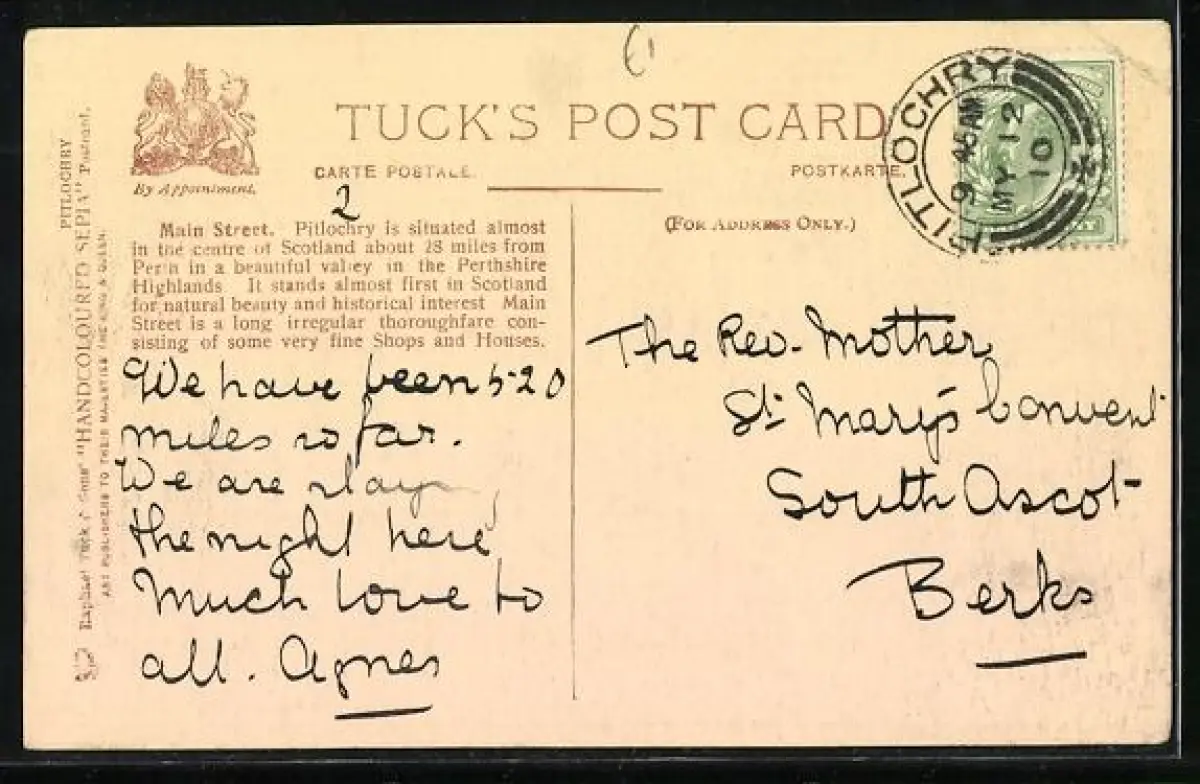 TUCK'S POST CARD
CARTE POSTALE.
POSTKARTE.
(FOR ADDRESS ONLY.)
By Appointment.
PITLOCHRY
9 45 AM
MY 12
10
2
Main Street. Pitlochry is situated almost
in the centre of Scotland about 28 miles from
Perth in a beautiful valley in the Perthshire
Highlands. It stands almost first in Scotland
for natural beauty and historical interest Main
Street is a long irregular thoroughfare con-
sisting of some very fine Shops and Houses.
We have been 520
miles so far.
We are
the night here
Much love to
all. Agnes
The Rev. Mother
St Mary's Convent
South Ascot
Berks
PITLOCHRY
Raphael Tuck & Sons' "HANDCOLOURED SEPIA" Postcard.
ART PUBLISHERS TO THEIR MAJESTIES THE KING & QUEEN.